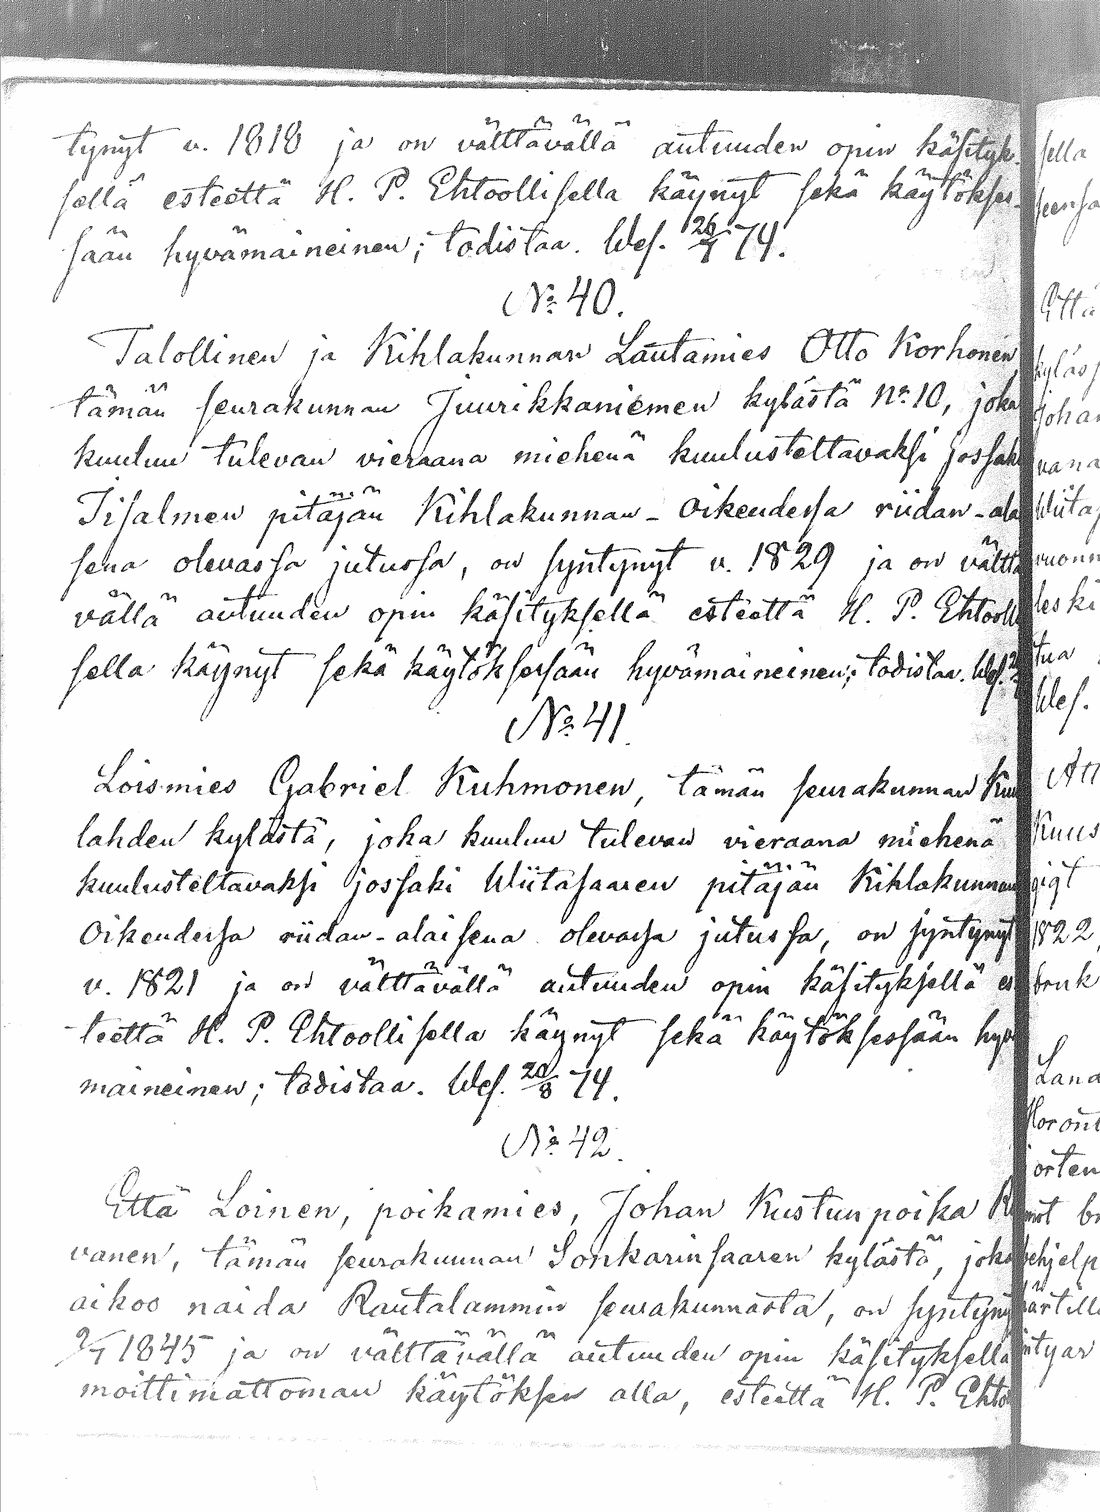 tynyt v. 1818 ja on välttävällä autuuden opin käsityk-
sellä esteettä H. P. Ehtoollisella käynyt sekä käytökses-
sään hyvämaineinen; todistaa. Wes. 26/7 74.
No 40.
Talollinen ja Kihlakunnan Lautamies Otto Korhonen
tämän seurakunnan Juurikkaniemen kylästä No 10, joka
kuuluu tulevan vieraana miehenä kuulusteltavaksi jossaki
Iisalmen pitäjän Kihlakunnan-Oikeudessa riidan-alai
sena olevassa jutussa, on syntynyt v. 1829 ja on vältt
vällä autuuden opin käsityksellä esteettä H. P. Ehtoolli
sella käynyt sekä käytöksessään hyvämaineinen; todistaa. Wes.
No 41.
Loismies Gabriel Kuhmonen, tämän seurakunnan Kuu
lahden kylästä, joka kuuluu tulevan vieraana miehenä
kuulusteltavaksi jossaki Wiitasaaren pitäjän Kihlakunnan
Oikeudessa riidan-alaisena olevassa jutussa, on syntynyt
v. 1821 ja on välttävällä autuuden opin käsityksellä es
teettä H. P. Ehtoollisella käynyt sekä käytöksessään hyv
maineinen; todistaa. Wes. 20/8 74.
No 42.
Että Loinen, poikamies, Johan Kustunpoika
vanen, tämän seurakunnan Sonkarinsaaren kylästä, joka
aikoo naida Rautalammin seurakunnasta, on syntyny
9/7 1845 ja on välttävällä autuuden opin käsityksellä
moittimattoman käytöksen alla, esteettä H. P. Ehto
sella
seensa
Että
kyläs
Johan
vana
Wiitas
vuonn
leski
tua
Wes.
Att
Kuus
gigt
1822,
bruk
Land
Horont
orten
mot br
behjelp
värtill
intyar